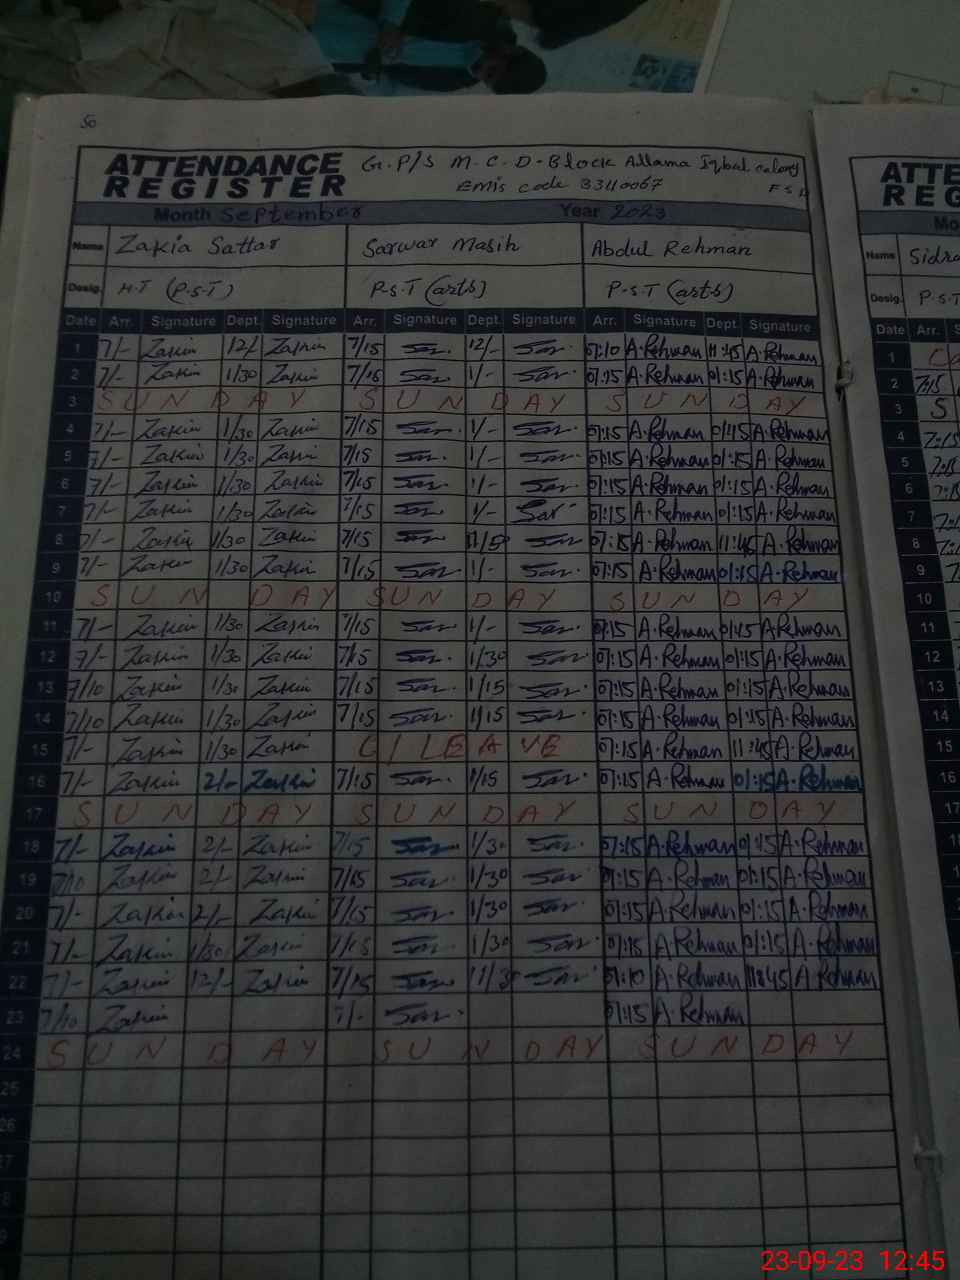 50
ATTENDANCE REGISTER G.P/S M.C.D-Block Allama Iqbal colony
Emis code 33110067 FSD
Month September Year 2023
Name Zakia Sattar Sarwar Masih Abdul Rehman
Desig. H.T (P.S.T) P.S.T (arts) P.S.T (arts)
Date Arr. Signature Dept. Signature Arr. Signature Dept. Signature Arr. Signature Dept. Signature
1 7/- Zakia 12/- Zakia 7/15 Sar 12/- Sar 07:10 A.Rehman 11:45 A.Rehman
2 7/- Zakia 1/30 Zakia 7/15 Sar 1/- Sar 07:15 A.Rehman 01:15 A.Rehman
3 SUNDAY SUNDAY SUNDAY
4 7/- Zakia 1/30 Zakia 7/15 Sar 1/- Sar 07:15 A.Rehman 01:15 A.Rehman
5 7/- Zakia 1/30 Zakia 7/15 Sar 1/- Sar 07:15 A.Rehman 01:15 A.Rehman
6 7/- Zakia 1/30 Zakia 7/15 Sar 1/- Sar 07:15 A.Rehman 01:15 A.Rehman
7 7/- Zakia 1/30 Zakia 7/15 Sar 1/- Sar 07:15 A.Rehman 01:15 A.Rehman
8 7/- Zakia 1/30 Zakia 7/15 Sar Sar 07:15 A.Rehman 11:45 A.Rehman
9 7/- Zakia 1/30 Zakia 7/15 Sar 1/- Sar 07:15 A.Rehman 01:15 A.Rehman
10 SUNDAY SUNDAY SUNDAY
11 7/- Zakia 1/30 Zakia 7/15 Sar 1/- Sar 07:15 A.Rehman 01:15 A.Rehman
12 7/- Zakia 1/30 Zakia 7/15 Sar 1/30 Sar 07:15 A.Rehman 01:15 A.Rehman
13 7/10 Zakia 1/30 Zakia 7/15 Sar 1/15 Sar 07:15 A.Rehman 01:15 A.Rehman
14 7/10 Zakia 1/30 Zakia 7/15 Sar 1/15 Sar 07:15 A.Rehman 01:15 A.Rehman
15 7/- Zakia 1/30 Zakia C/LEAVE 07:15 A.Rehman 11:45 A.Rehman
16 7/- Zakia 2/- Zakia 7/15 Sar 1/15 Sar 07:15 A.Rehman 01:15 A.Rehman
17 SUNDAY SUNDAY SUNDAY
18 7/- Zakia 2/- Zakia 7/15 Sar 1/30 Sar 07:15 A.Rehman 01:15 A.Rehman
19 7/10 Zakia 2/- Zakia 7/15 Sar 1/30 Sar 07:15 A.Rehman 01:15 A.Rehman
20 7/- Zakia 2/- Zakia 7/15 Sar 1/30 Sar 07:15 A.Rehman 01:15 A.Rehman
21 7/- Zakia 1/30 Zakia 7/15 Sar 1/30 Sar 07:15 A.Rehman 01:15 A.Rehman
22 7/- Zakia 12/- Zakia 7/15 Sar Sar 07:10 A.Rehman 11:45 A.Rehman
23 7/10 Zakia 7/- Sar 07:15 A.Rehman
24 SUNDAY SUNDAY SUNDAY
25
26
Name Sidra
Desig. P.S.T
Date Arr.
1
2 7:15
3 S
4 7:15
5
6
7
8
9
10
11
12
13
14
15
16
17
23-09-23 12:45